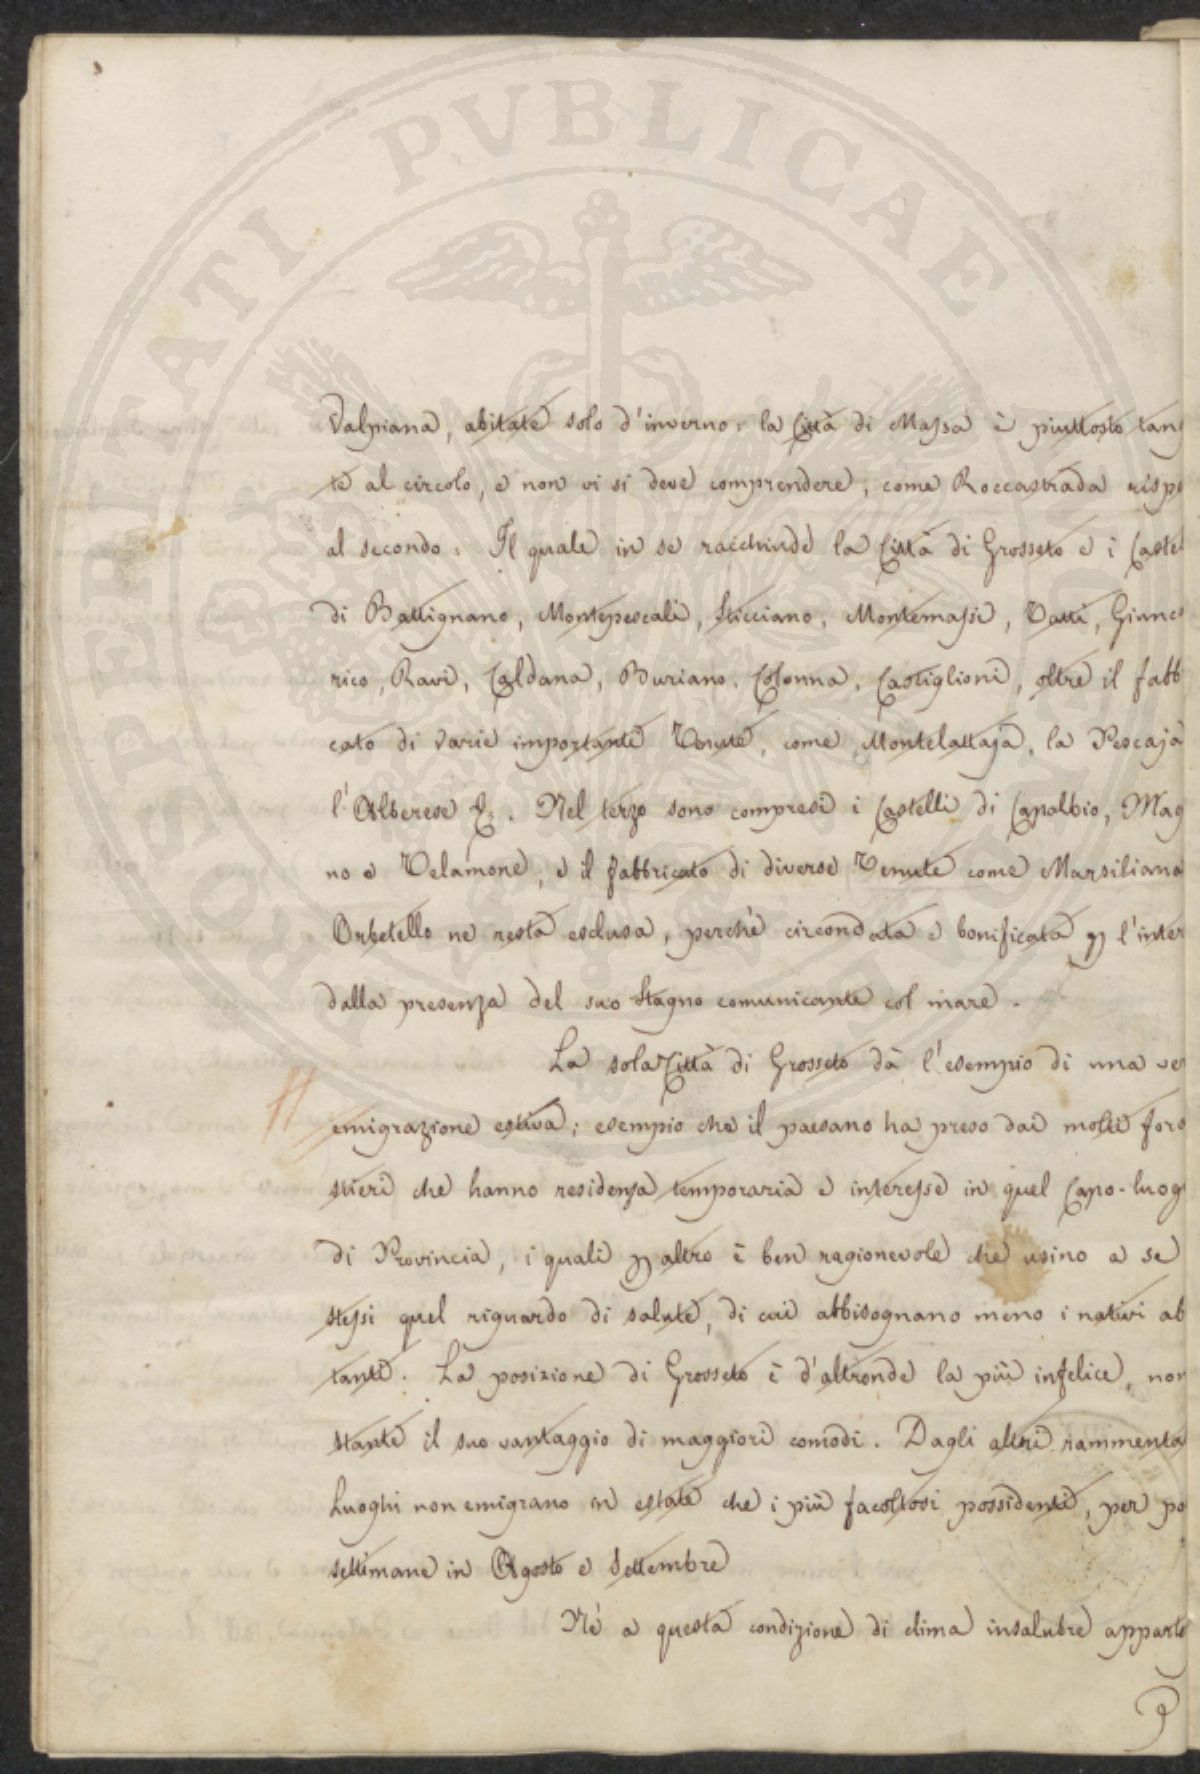 PROSPERITATI PVBLICAE
Valpiana, abitate solo d'inverno: la Città di Massa è piuttosto tang
te al circolo, e non vi si deve comprendere, come Roccastrada rispe
al secondo. Il quale in se racchiude la Città di Grosseto e i Caste
di Battignano, Montepescali, Sticciano, Montemassi, Tatti, Giunca
rico, Ravi, Caldana, Buriano, Colonna, Castiglioni, oltre il fabb
cato di varie importanti Tenute, come Montelattaja, la Pescaja
l'Alberese &. Nel terzo sono compresi i Castelli di Capalbio, Mag
no e Telamone, e il fabbricato di diverse Tenute come Marsiliana
Orbetello ne resta esclusa, perchè circondata e bonificata p l'inter
dalla presenza del suo Stagno comunicante col mare.
La sola Città di Grosseto dà l'esempio di una ver
emigrazione estiva; esempio che il paesano ha preso dai molti fore
stieri che hanno residenza temporaria e interesse in quel Capo-luog
di Provincia, i quali p altro è ben ragionevole che usino a se
stessi quel riguardo di salute, di cui abbisognano meno i nativi ab
tanti. La posizione di Grosseto è d'altronde la più infelice, non
stante il suo vantaggio di maggiori comodi. Dagli altri rammenta
Luoghi non emigrano in estate che i più facoltosi possidenti, per po
settimane in Agosto e Settembre
Nè a questa condizione di clima insalubre apparte